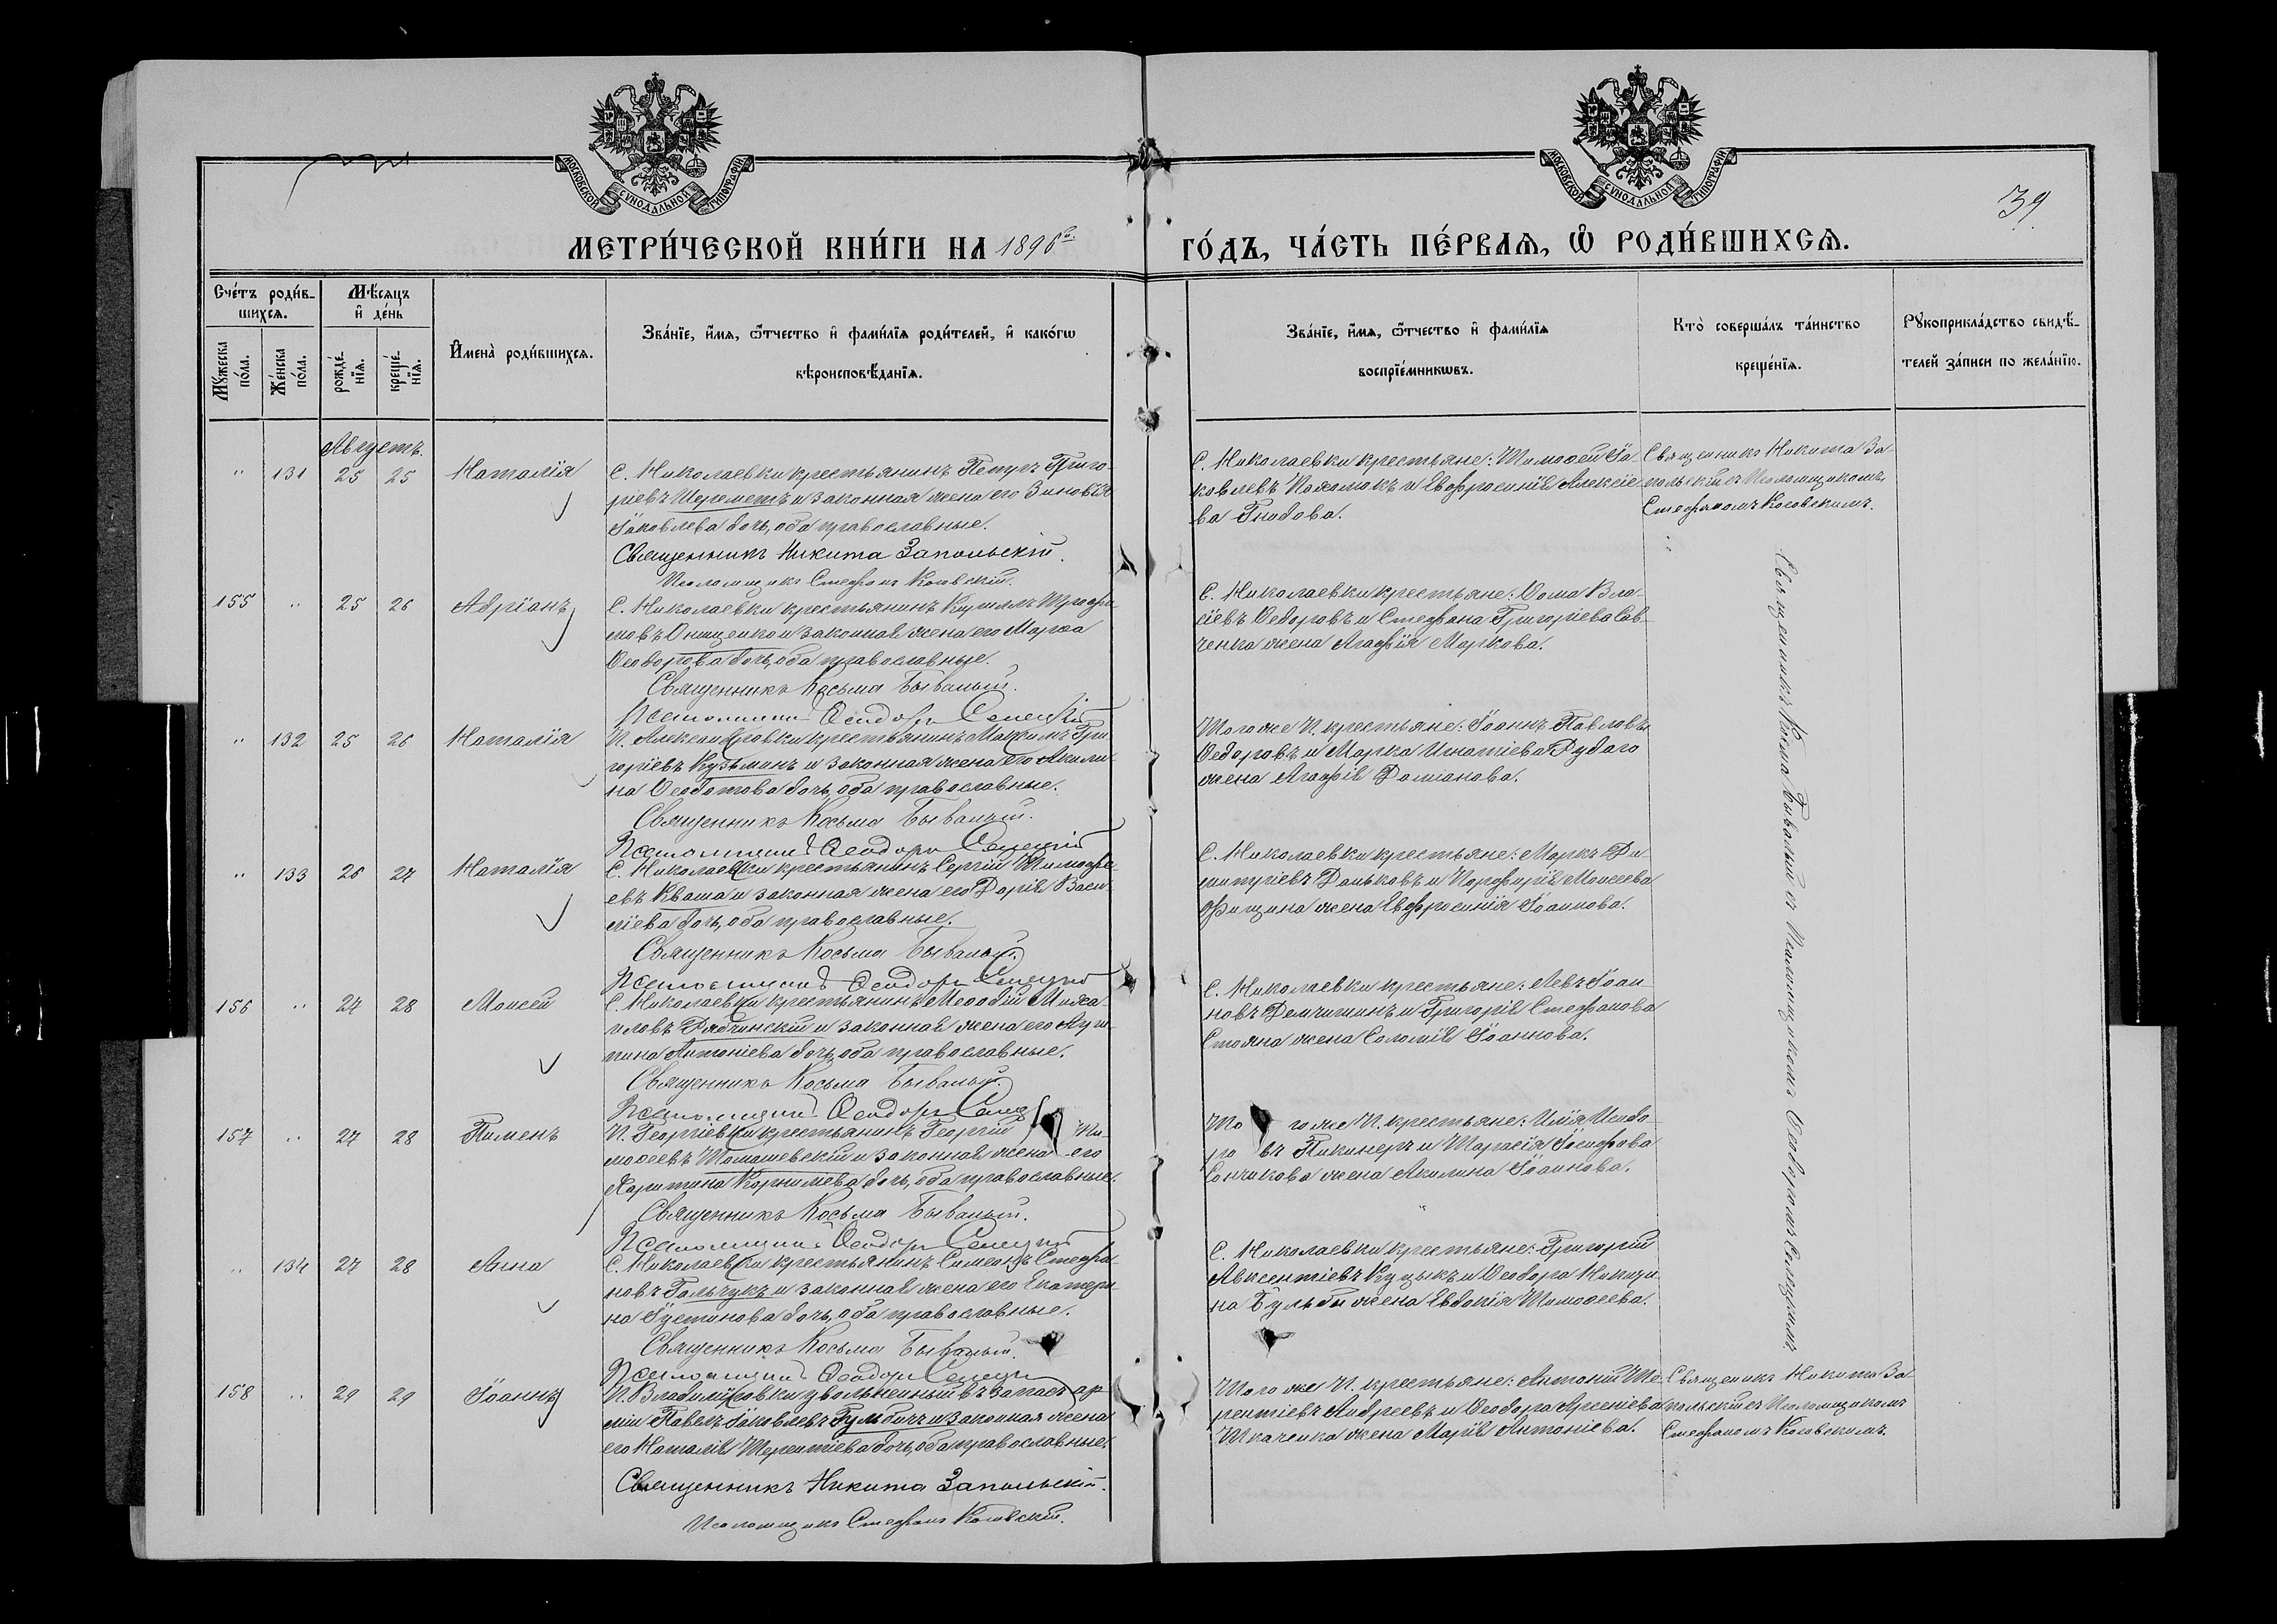 МОСКОВСКОЙ СѴНОДАЛЬНОЙ ТИПОГРАФІИ
МОСКОВСКОЙ СѴНОДАЛЬНОЙ ТИПОГРАФІИ
39
МЕТРИ́ЧЕСКОЙ КНИ́ГИ НА 1896й
ГО́ДЪ, ЧА́СТЬ ПЕ́РВАЯ, Ѽ РОДИ́ВШИХСЯ.
Сче́тъ роди́в-
шихся.
Мѣ́сяцъ
и҆ де́нь
Мꙋ́жеска
по́ла.
Же́нска
по́ла.
рожде́-
нїя.
креще́-
нїя.
И҆мена̀ роди́вшихся.
Зва́нїе, и҆́мя, ѻ҆́тчество и҆ фами́лїя роди́телей, и҆ како́гѡ
вѣроисповѣ́данїя.
Зва́нїе, и҆́мя, ѻ҆́тчество и҆ фами́лїя
воспрїе́мникѡвъ.
Кто̀ соверша́лъ та́инство
креще́нїя.
Рꙋкоприкла́дство свидѣ́-
телей за́писи по жела́нїю.
Августъ.
" 131 25 25 Наталія
С. Николаевки крестьянинъ Петръ Григо-
ріевъ Шереметъ и законная жена его Зиновія
Іаковлева дочь, оба православные.
Священникъ Никита Запольскій.
Псаломщикъ Стефанъ Косовскій.
С. Николаевки крестьяне: Тимоѳей Іа-
ковлевъ Пахомокъ и Евфросинія Алексіе-
ва Гнодова.
Священникъ Никита За-
польскій съ Псаломщикомъ
Стефаномъ Косовскимъ.
155 " 25 26 Адріанъ
С. Николаевки крестьянинъ Кириллъ Трофи-
мовъ Онищенко и законная жена его Марѳа
Ѳеодорова дочь, оба православные.
Священникъ Косьма Бывалый.
Псаломщикъ Ѳеодоръ Селецкій
С. Николаевки крестьяне: Ѳома Вла-
сіевъ Ѳедоровъ и Стефана Григоріева Сав-
ченка жена Агафія Маркова.
Священникъ Косьма Бывалый съ Псаломщикомъ Ѳеодоромъ Селецкимъ
" 132 25 26 Наталія
П. Александровки крестьянинъ Максимъ Гри-
горіевъ Кузьминъ и законная жена его Акили-
на Ѳеодотова дочь, оба православные.
Священникъ Косьма Бывалый.
Псаломщикъ Ѳеодоръ Селецкій
Того же П. крестьяне: Іоаннъ Павловъ
Ѳедоровъ и Марка Игнатіева Рудаго
жена Агафія Даміанова.
" 133 26 27 Наталія
С. Николаевки крестьянинъ Сергій Тимоѳе-
евъ Кваша и законная жена его Дарія Васи-
ліева дочь, оба православные.
Священникъ Косьма Бывалый.
Псаломщикъ Ѳеодоръ Селецкій
С. Николаевки крестьяне: Маркъ Ди-
митріевъ Даньковъ и Порфирія Моисеева
жена Евфросинія Іоаннова.
156 " 27 28 Моисей
С. Николаевки крестьянинъ Меѳодій Миха-
иловъ Рябчинскій и законная жена его Агри-
пина Антоніева дочь, оба православные.
Священникъ Косьма Бывалый.
Псаломщикъ Ѳеодоръ
С. Николаевки крестьяне: Левъ Іоан-
новъ Демчишинъ и Григорія Стефанова
Стояна жена Соломія Іоаннова.
157 " 27 28 Пименъ
П. Георгіевки крестьянинъ Георгій Ти-
моѳеевъ Томашевскій и законная жена его
Харитина Корнилева дочь, оба православные.
Священникъ Косьма Бывалый.
Псаломщикъ Ѳеодоръ Селецкій
То го же П. крестьяне: Илія Исидо-
ро въ Пикинеръ и Тарасія Іосифова
Сончикова жена Акилина Іоаннова.
" 134 27 28 Анна
С. Николаевки крестьянинъ Симеонъ Стефа-
новъ Гальчукъ и законная жена его Екатери-
на Іустинова дочь, оба православные.
Священникъ Косьма Бывалый.
Псаломщикъ Ѳеодоръ Селецкій
С. Николаевки крестьяне: Григорій
Авксентіевъ Куцыкъ и Ѳеодора Никити-
на Бульбы жена Евдокія Тимоѳеева.
158 " 29 29 Іоаннъ
П. Владиміровки уволенный въ запасъ ар-
міи Павелъ Іаковлевъ Гульбичъ и законная жена
его Наталія Терентіева дочь, оба православные.
Священникъ Никита Запольскій.
Псаломщикъ Стефанъ Косовскій.
Того же П. крестьяне: Антоній Те-
рентіевъ Андреевъ и Ѳеодора Арсеніева
Ткаченка жена Марія Антоніева.
Священникъ Никита За-
польскій съ Псаломщикомъ
Стефаномъ Косовскимъ.